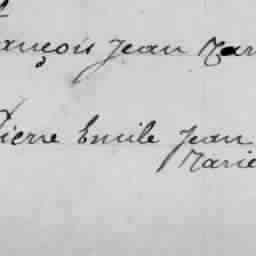 ançois Jean Mar
Pierre Emile Jean
Marie